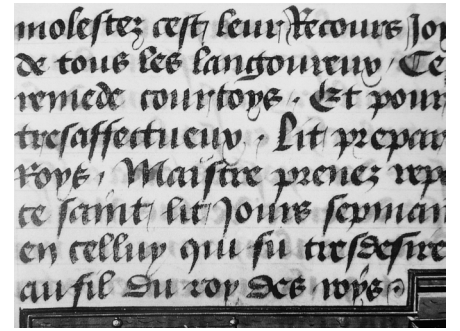 molestez cest leur Recours Joy
de tous les langoureux. Ce
remede courtoys. Et pour
tresaffectueux. Lit prepar
Roys. Maistre prenez repo
ce saint lit Jours sepmain
en celluy qui fu tresdesire
au fil du roy des roys.